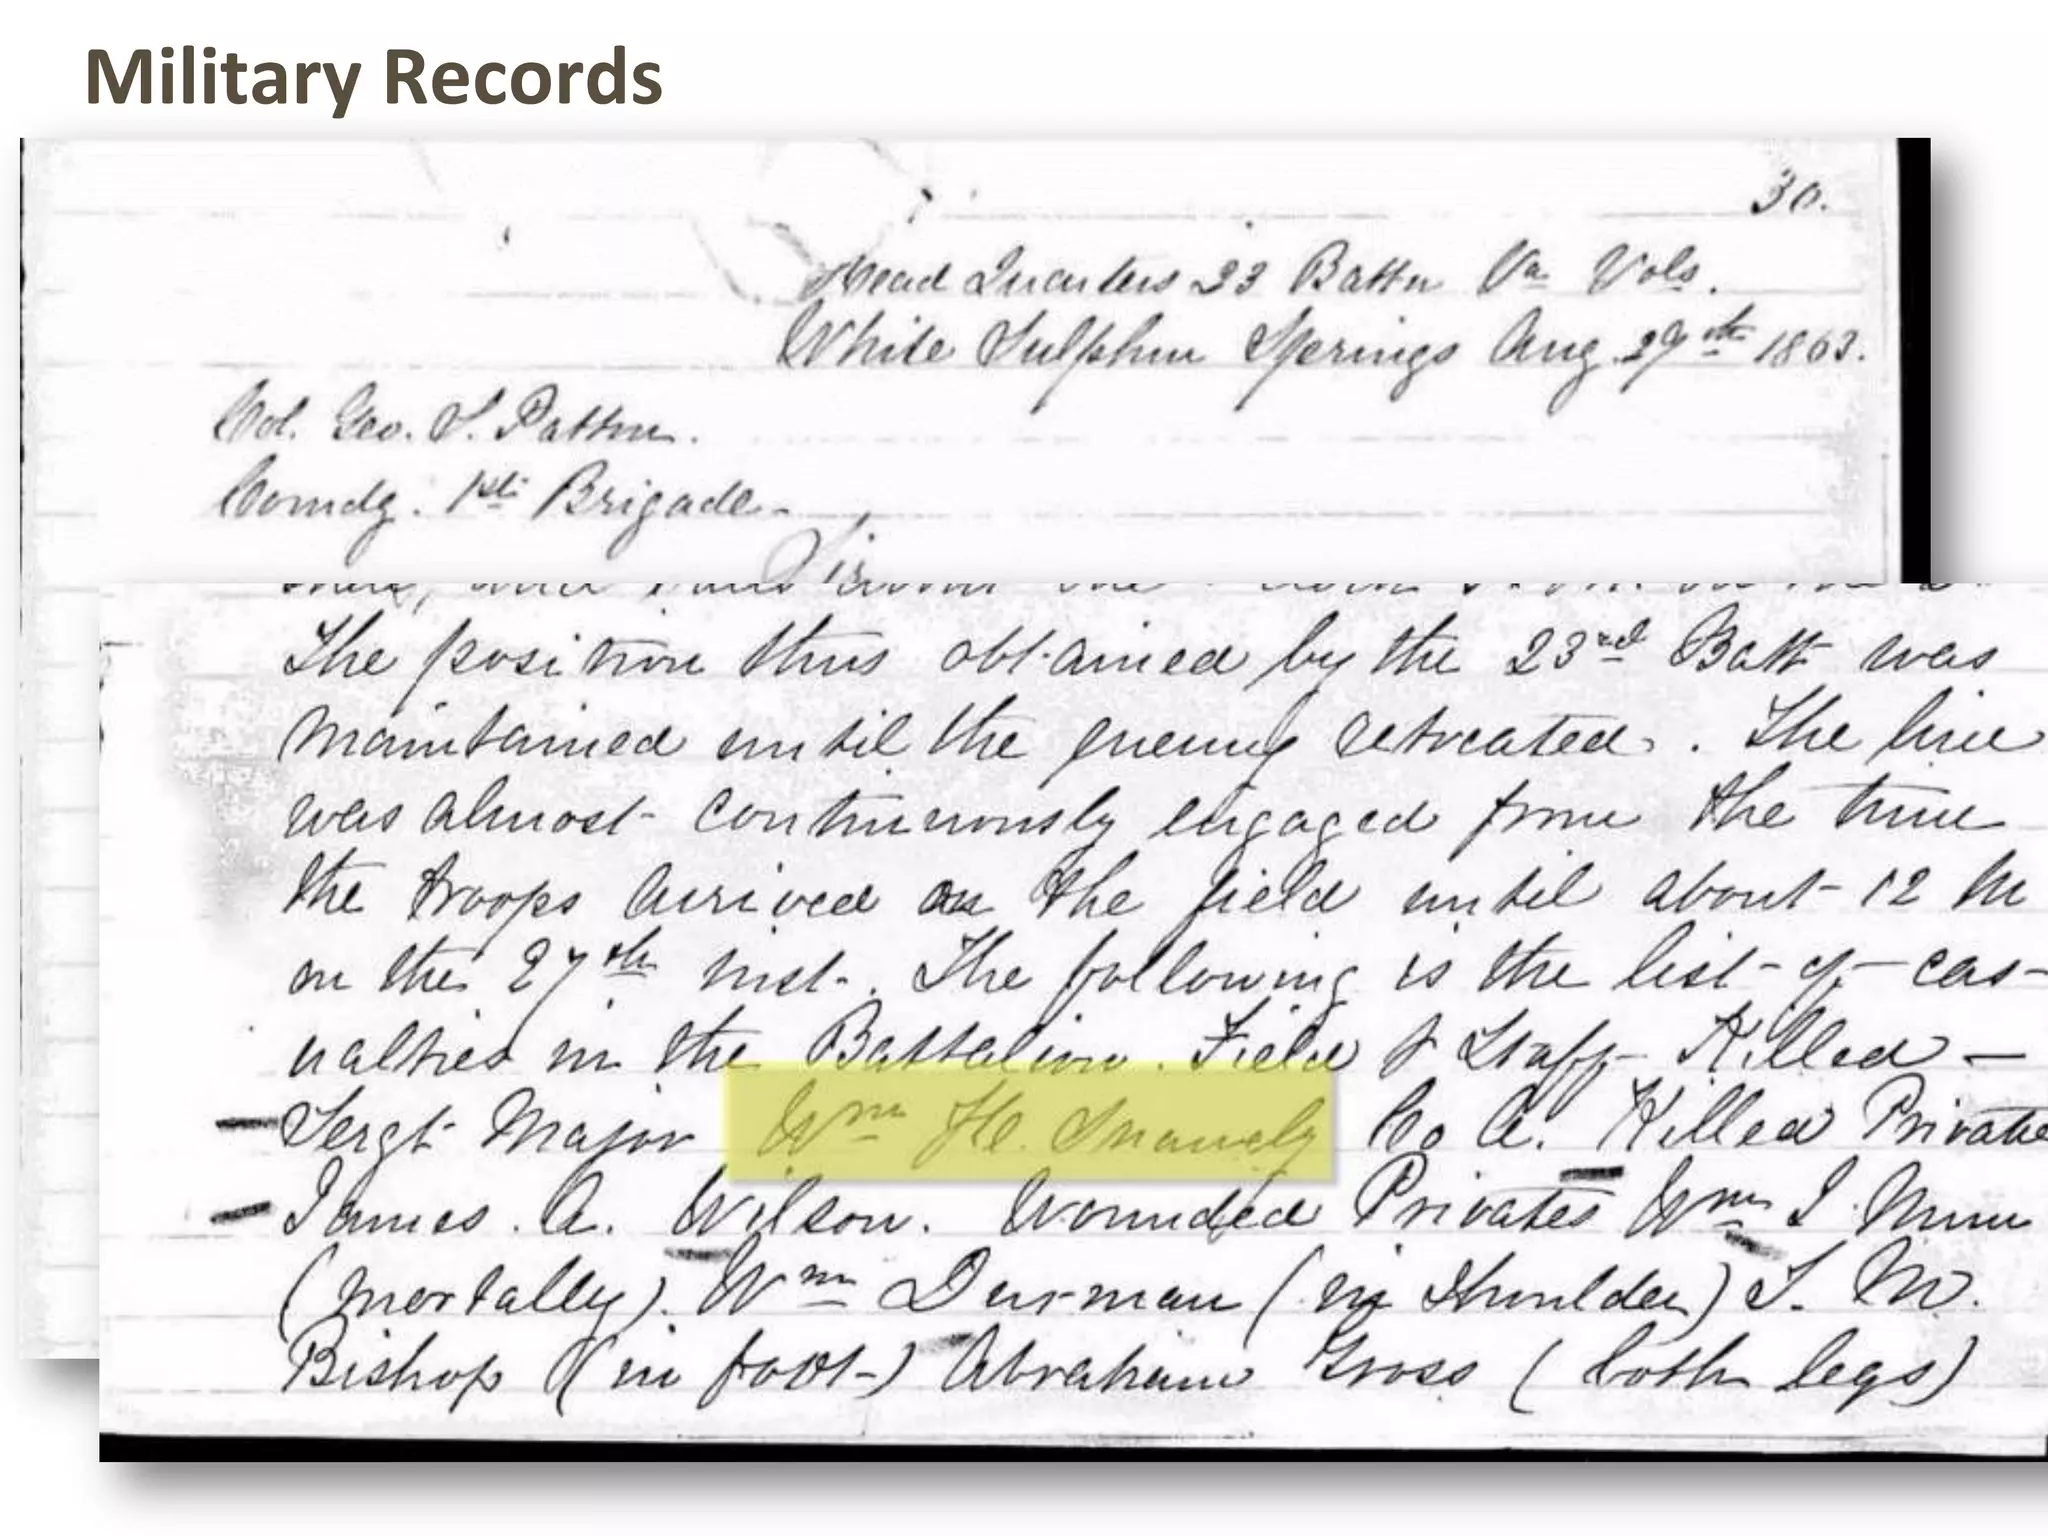 Military Records
30.
Head Quarters 23 Battn Va Vols.
White Sulphur Springs Aug. 29th 1863.
Col. Geo. S. Patton.
Comdg. 1st Brigade.
Sir
The position thus obtained by the 23rd Batt was
maintained until the enemy retreated. The line
was almost continuously engaged from the time
the troops arrived on the field until about 12 M
on the 27th inst. The following is the list of cas-
ualties in the Battalion. Field & Staff Killed —
Sergt Major Wm H. Co A. Killed Private
James. A. Wilson. Wounded Privates Wm I
(mortally). Wm Durman (in shoulder) S. M.
Bishop (in foot) Abraham Gross (both legs)